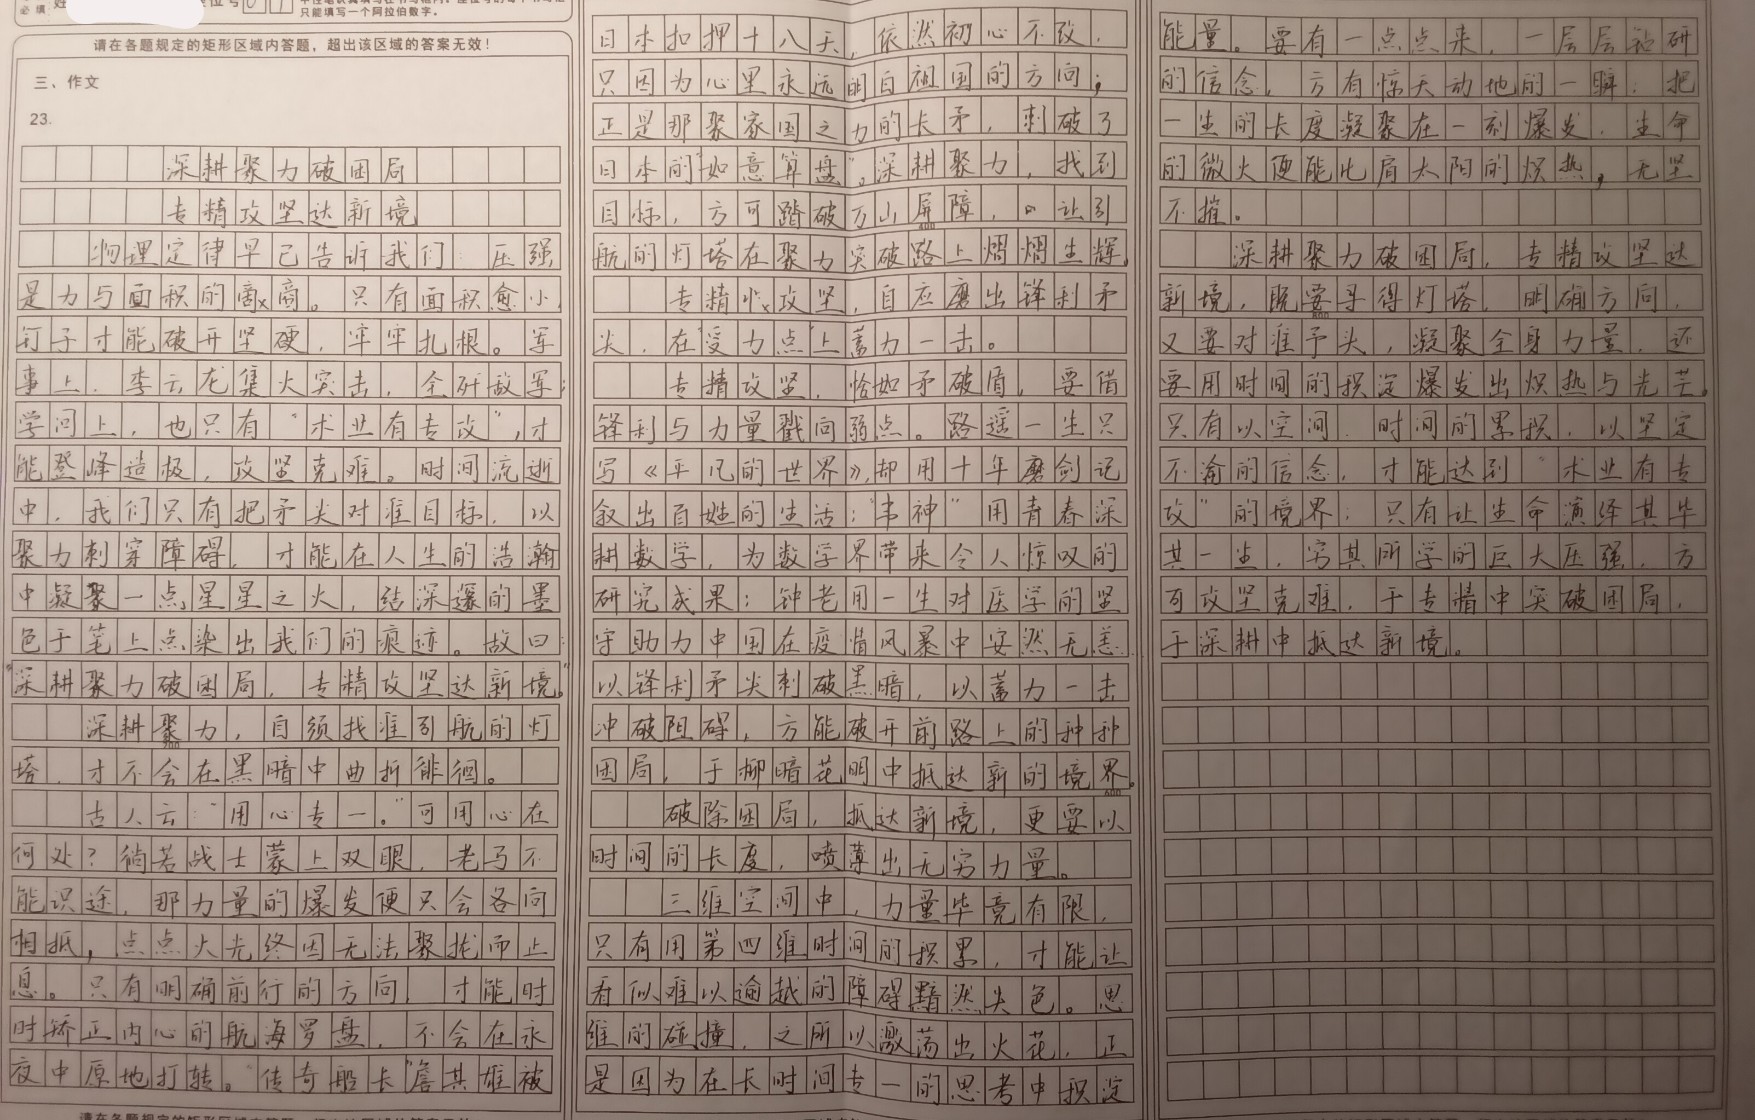 必填
只能填写一个阿拉伯数字。
请在各题规定的矩形区域内答题，超出该区域的答案无效！
三、作文
23.
深耕聚力破困局
专精攻坚达新境
物理定律早已告诉我们：压强
是力与面积的商。只有面积愈小，
钉子才能破开坚硬，牢牢扎根。军
事上，李云龙集火突击，全歼敌军；
学问上，也只有“术业有专攻”，才
能登峰造极，攻坚克难。时间流逝
中，我们只有把矛尖对准目标，以
聚力刺穿障碍，才能在人生的浩瀚
中凝聚一点星星之火，结深邃的墨
色于笔上点染出我们的痕迹。故曰：
“深耕聚力破困局，专精攻坚达新境。”
深耕聚力，自须找准引航的灯
塔，才不会在黑暗中曲折徘徊。
古人云：“用心专一。”可用心在
何处？倘若战士蒙上双眼，老马不
能识途，那力量的爆发便只会各向
相抵，点点火光终因无法聚拢而止
息。只有明确前行的方向，才能时
时矫正内心的航海罗盘，不会在永
夜中原地打转。“传奇船长”詹其雄被
日本扣押十八天，依然初心不改，
只因为心里永远明白祖国的方向；
正是那聚家国之力的长矛，刺破了
日本的“如意算盘”。深耕聚力，找到
目标，方可踏破万山屏障，让引
航的灯塔在聚力突破路上熠熠生辉。
专精攻坚，自应磨出锋利矛
尖，在“受力点”上蓄力一击。
专精攻坚，恰如矛破盾，要借
锋利与力量戳向弱点。路遥一生只
写《平凡的世界》，却用十年磨剑记
叙出百姓的生活；“韦神”用青春深
耕数学，为数学界带来令人惊叹的
研究成果；钟老用一生对医学的坚
守助力中国在疫情风暴中安然无恙。
以锋利矛尖刺破黑暗，以蓄力一击
冲破阻碍，方能破开前路上的种种
困局，于柳暗花明中抵达新的境界。
破除困局，抵达新境，更要以
时间的长度，喷薄出无穷力量。
三维空间中，力量毕竟有限，
只有用第四维时间的积累，才能让
看似难以逾越的障碍黯然失色。思
维的碰撞，之所以激荡出火花，正
是因为在长时间专一的思考中积淀
能量。要有一点点来，一层层钻研
的信念，方有惊天动地的一瞬；把
一生的长度凝聚在一刻爆发，生命
的微火便能比肩太阳的炽热，无坚
不摧。
深耕聚力破困局，专精攻坚达
新境，既要寻得灯塔，明确方向，
又要对准予头，凝聚全身力量，还
要用时间的积淀爆发出炽热与光芒。
只有以空间、时间的累积，以坚定
不渝的信念，才能达到“术业有专
攻”的境界；只有让生命演绎其毕
其一生，穷其所学的巨大压强，方
可攻坚克难，于专精中突破困局，
于深耕中抵达新境。